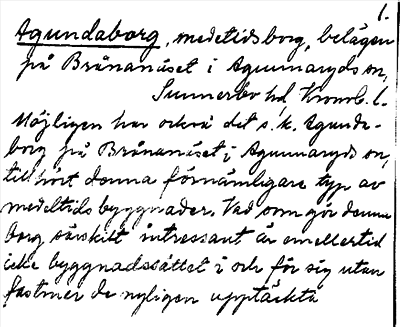 1.
Agundaborg, medeltidsborg, belägen
på Brånanäset i Agunnaryds sn,
Sunnerbo hd Kronob. l.
Möjligen har också det s. k. Agunda-
borg på Brånanäset i Agunnaryds sn,
tillhört denna förnämligare typ av
medeltidsbyggnader. Vad som gör denna
borg särskilt intressant är emellertid
icke byggnadssättet i och för sig utan
fastmer de nyligen upptäckta